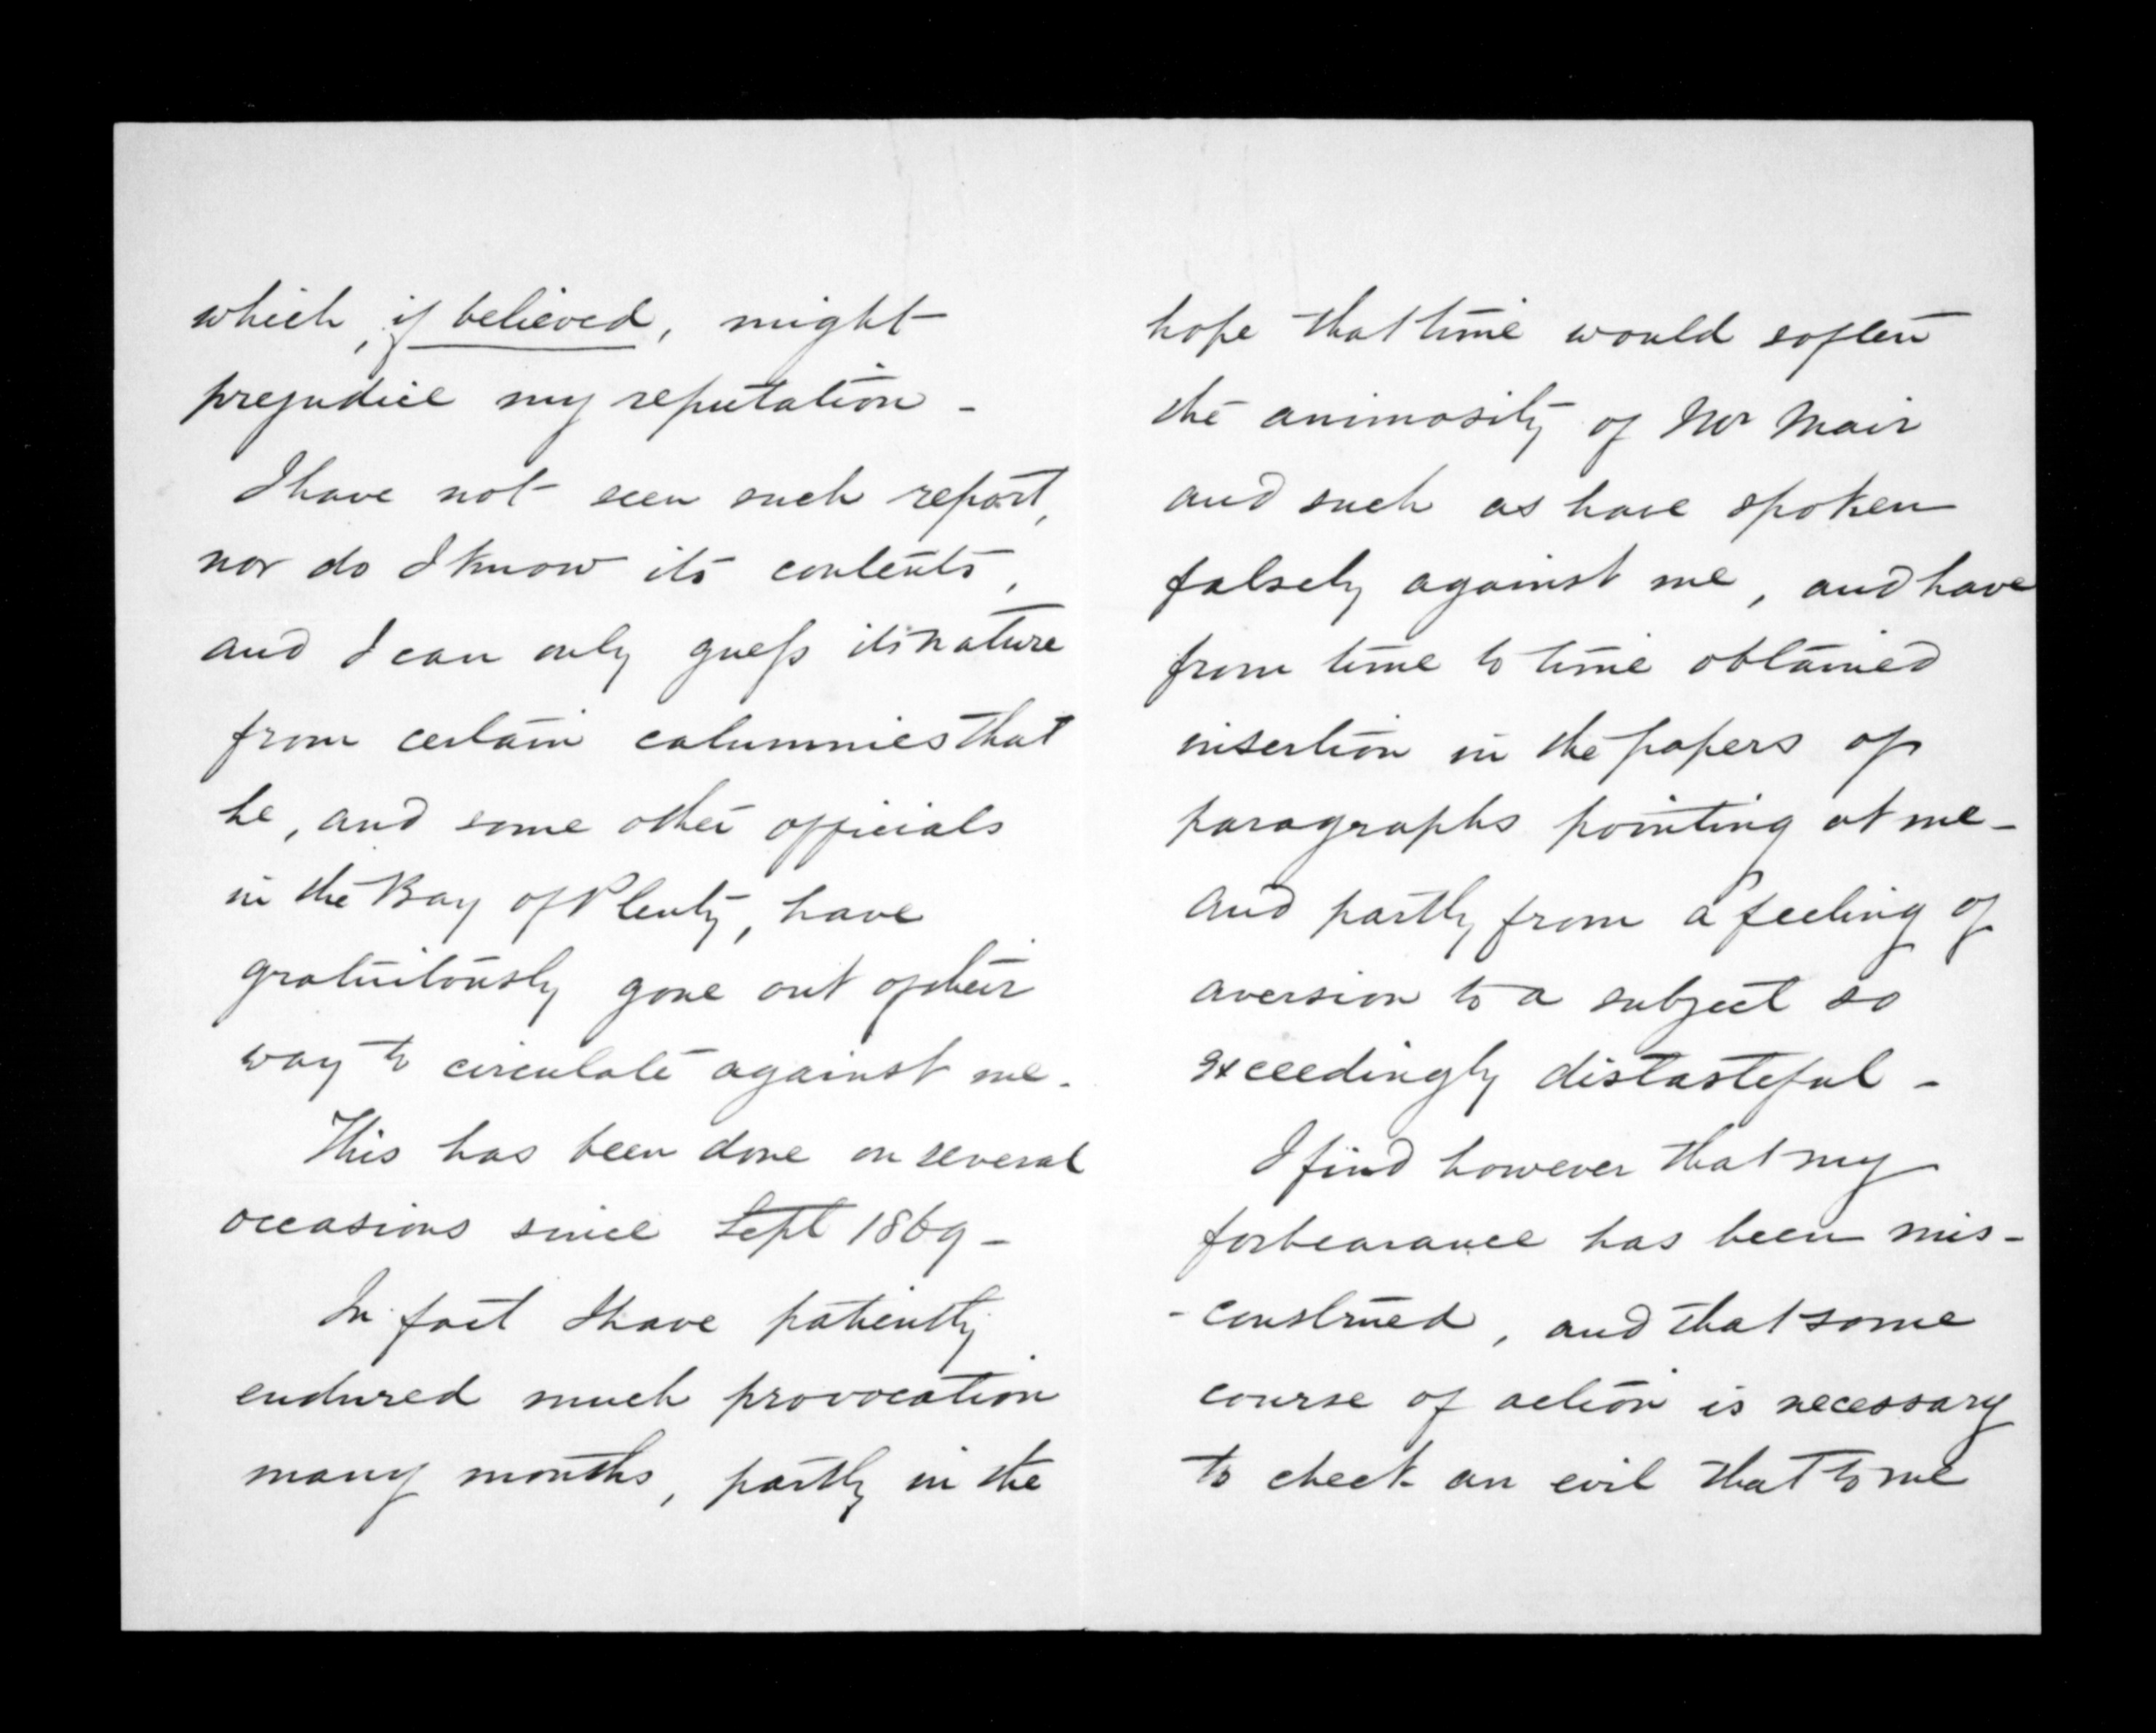 which, if believed, might
prejudice my reputation -
I have not seen such report,
nor do I know its contents,
and I can only guess its nature
from certain calumnies that
he, and some other officials
in the Bay of Plenty, have
gratuitously gone out of their
way to circulate against me.
This has been done on several
occasions since Sept 1869 -
In fact I have patiently
endured much provocation
many months, partly in the
hope that time would soften
the animosity of Mr Mair
and such as have spoken
falsely against me, and have
from time to time obtained
insertion in the papers of
paragraphs pointing at me -
and partly from a feeling of
aversion to a subject so
exceedingly distasteful -
I find however that my
forbearance has been mis-
- construed, and that some
course of action is necessary
to check an evil that to me